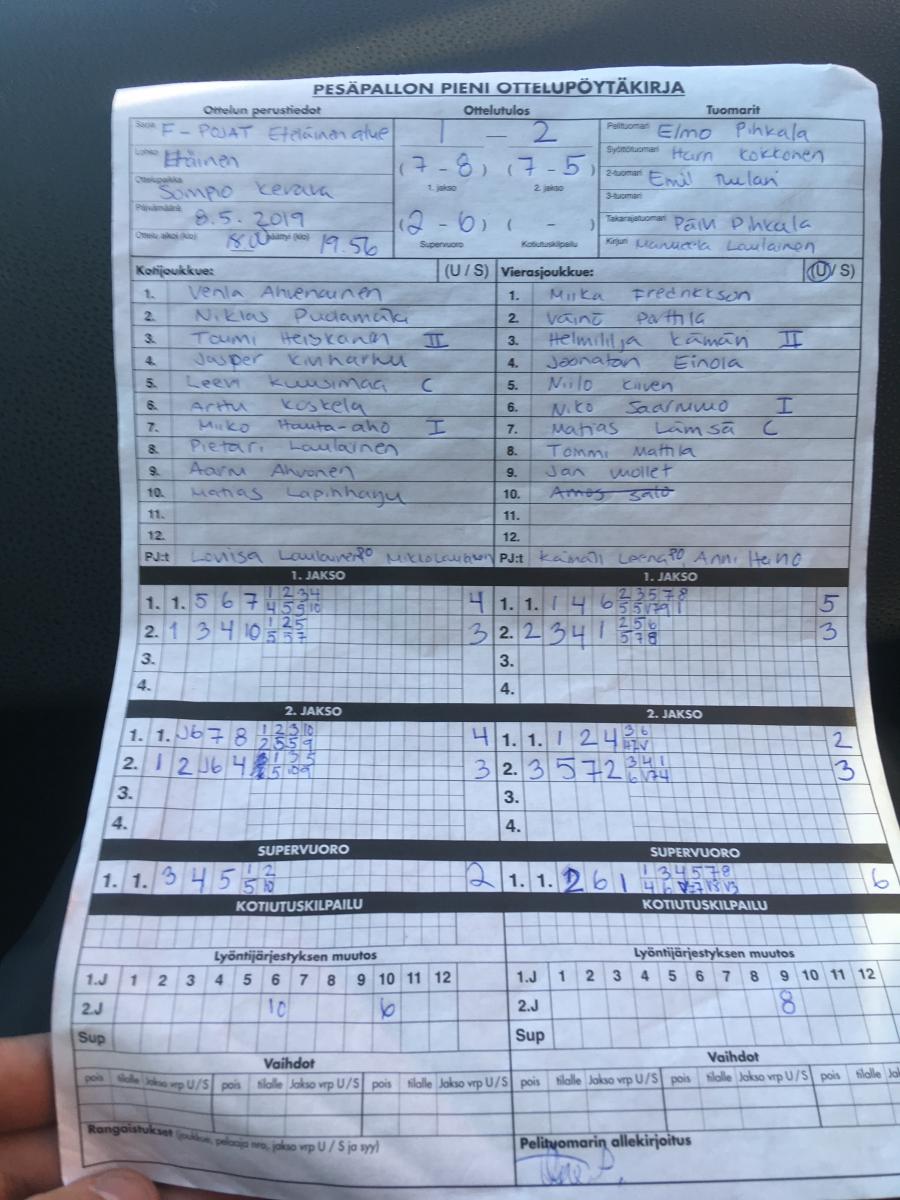 PESÄPALLON PIENI OTTELUPÖYTÄKIRJA
Ottelun perustiedot Ottelutulos Tuomarit
Sarja F-POJAT Eteläinen alue 1 – 2 Pelituomari Elmo Pihkala
Lohko Etäinen (7-8) (7-5) Syöttötuomari Harri Kokkonen
1. jakso 2. jakso 2-tuomari Emil
Ottelupaikka Sompio Kerava 3-tuomari
Päivämäärä 8.5.2019 (2-6) ( - ) Takarajatuomari Päivi Pihkala
Ottelu alkoi (klo) 18.00 päättyi (klo) 19.56 Supervuoro Kotiutuskilpailu Kirjuri Laulainen
Kotijoukkue: (U / S) Vierasjoukkue: (U / S)
1. Venla Ahvenainen 1. Miika Fredriksson
2. Niklas Pudamäki 2. Väinö Parttila
3. Toumi Heiskanen II 3. Helmililja Kämäri II
4. Jasper Kinharhu 4. Joonatan Einola
5. Leevi Kuusimaa C 5. Niilo Kiiveri
6. Arttu Koskela 6. Niko I
7. Miiko Hauta-aho I 7. Matias Lämsä C
8. Pietari Laulainen 8. Tommi Mattila
9. Aarni Ahvonen 9. Jan Mollet
10. Matias Lapinharju 10. Amos Salo
11. 11.
12. 12.
PJ:t Lovisa Laulainen PJ:t Anni Heino
1. JAKSO 1. JAKSO
1. 1. 5 6 7 1 2 3 4 4 1. 1. 1 4 6 2 3 5 7 8 5
4 5 9 10
2. 1 3 4 10 1 2 5 3 2. 2 3 4 1 2 5 6 3
5 5 7 5 7 8
3. 3.
4. 4.
2. JAKSO 2. JAKSO
1. 1. 6 7 8 1 2 3 10 4 1. 1. 1 2 4 3 6 2
2 5 5 9
2. 1 2 6 4 3 2. 3 5 7 2 3 4 1 3
3. 3.
4. 4.
SUPERVUORO SUPERVUORO
1. 1. 3 4 5 1 2 2 1. 1. 2 6 1 1 3 4 5 7 8 6
5 10
KOTIUTUSKILPAILU KOTIUTUSKILPAILU
Lyöntijärjestyksen muutos Lyöntijärjestyksen muutos
1.J 1 2 3 4 5 6 7 8 9 10 11 12 1.J 1 2 3 4 5 6 7 8 9 10 11 12
2.J 10 6 2.J 8
Sup Sup
Vaihdot Vaihdot
pois tilalle Jakso vrp U / S pois tilalle Jakso vrp U / S pois tilalle Jakso vrp U / S pois tilalle Jakso vrp U / S pois tilalle Jakso vrp U / S pois tilalle
Rangaistukset (joukkue, pelaaja nro, jakso vrp U / S ja syy) Pelituomarin allekirjoitus